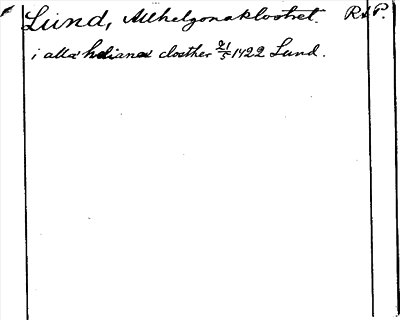 Lund, Allhelgonaklostret. R&P.
i alla heliana closther 21/5 1422 Lund.